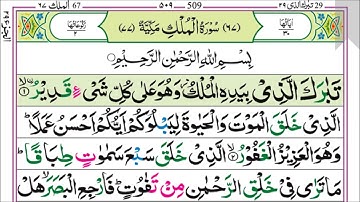 تبارك الذی 29 509 الملك 67
اٰیاتھا ۳۰ (۶۷) سُوْرَةُ الْمُلْكِ مَكِّيَّةٌ (۷۷) رکوعاتھا ۲
بِسْمِ اللّٰهِ الرَّحْمٰنِ الرَّحِيْمِ
تَبٰرَكَ الَّذِيْ بِيَدِهِ الْمُلْكُ وَهُوَ عَلٰى كُلِّ شَيْءٍ قَدِيْرُۙ ۱
الَّذِيْ خَلَقَ الْمَوْتَ وَالْحَيٰوةَ لِيَبْلُوَكُمْ اَيُّكُمْ اَحْسَنُ عَمَلًاؕ
وَهُوَ الْعَزِيْزُ الْغَفُوْرُۙ ۲ الَّذِيْ خَلَقَ سَبْعَ سَمٰوٰتٍ طِبَاقًاؕ
مَا تَرٰى فِيْ خَلْقِ الرَّحْمٰنِ مِنْ تَفٰوُتٍؕ فَارْجِعِ الْبَصَرَۙ هَلْ